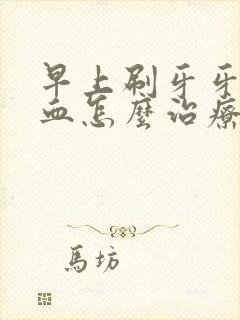 早上刷牙牙
血怎麼治療
馬坊